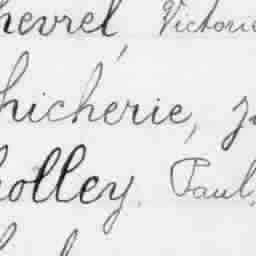 hevrel, Victorie
hicherie, J
holley. Paul.